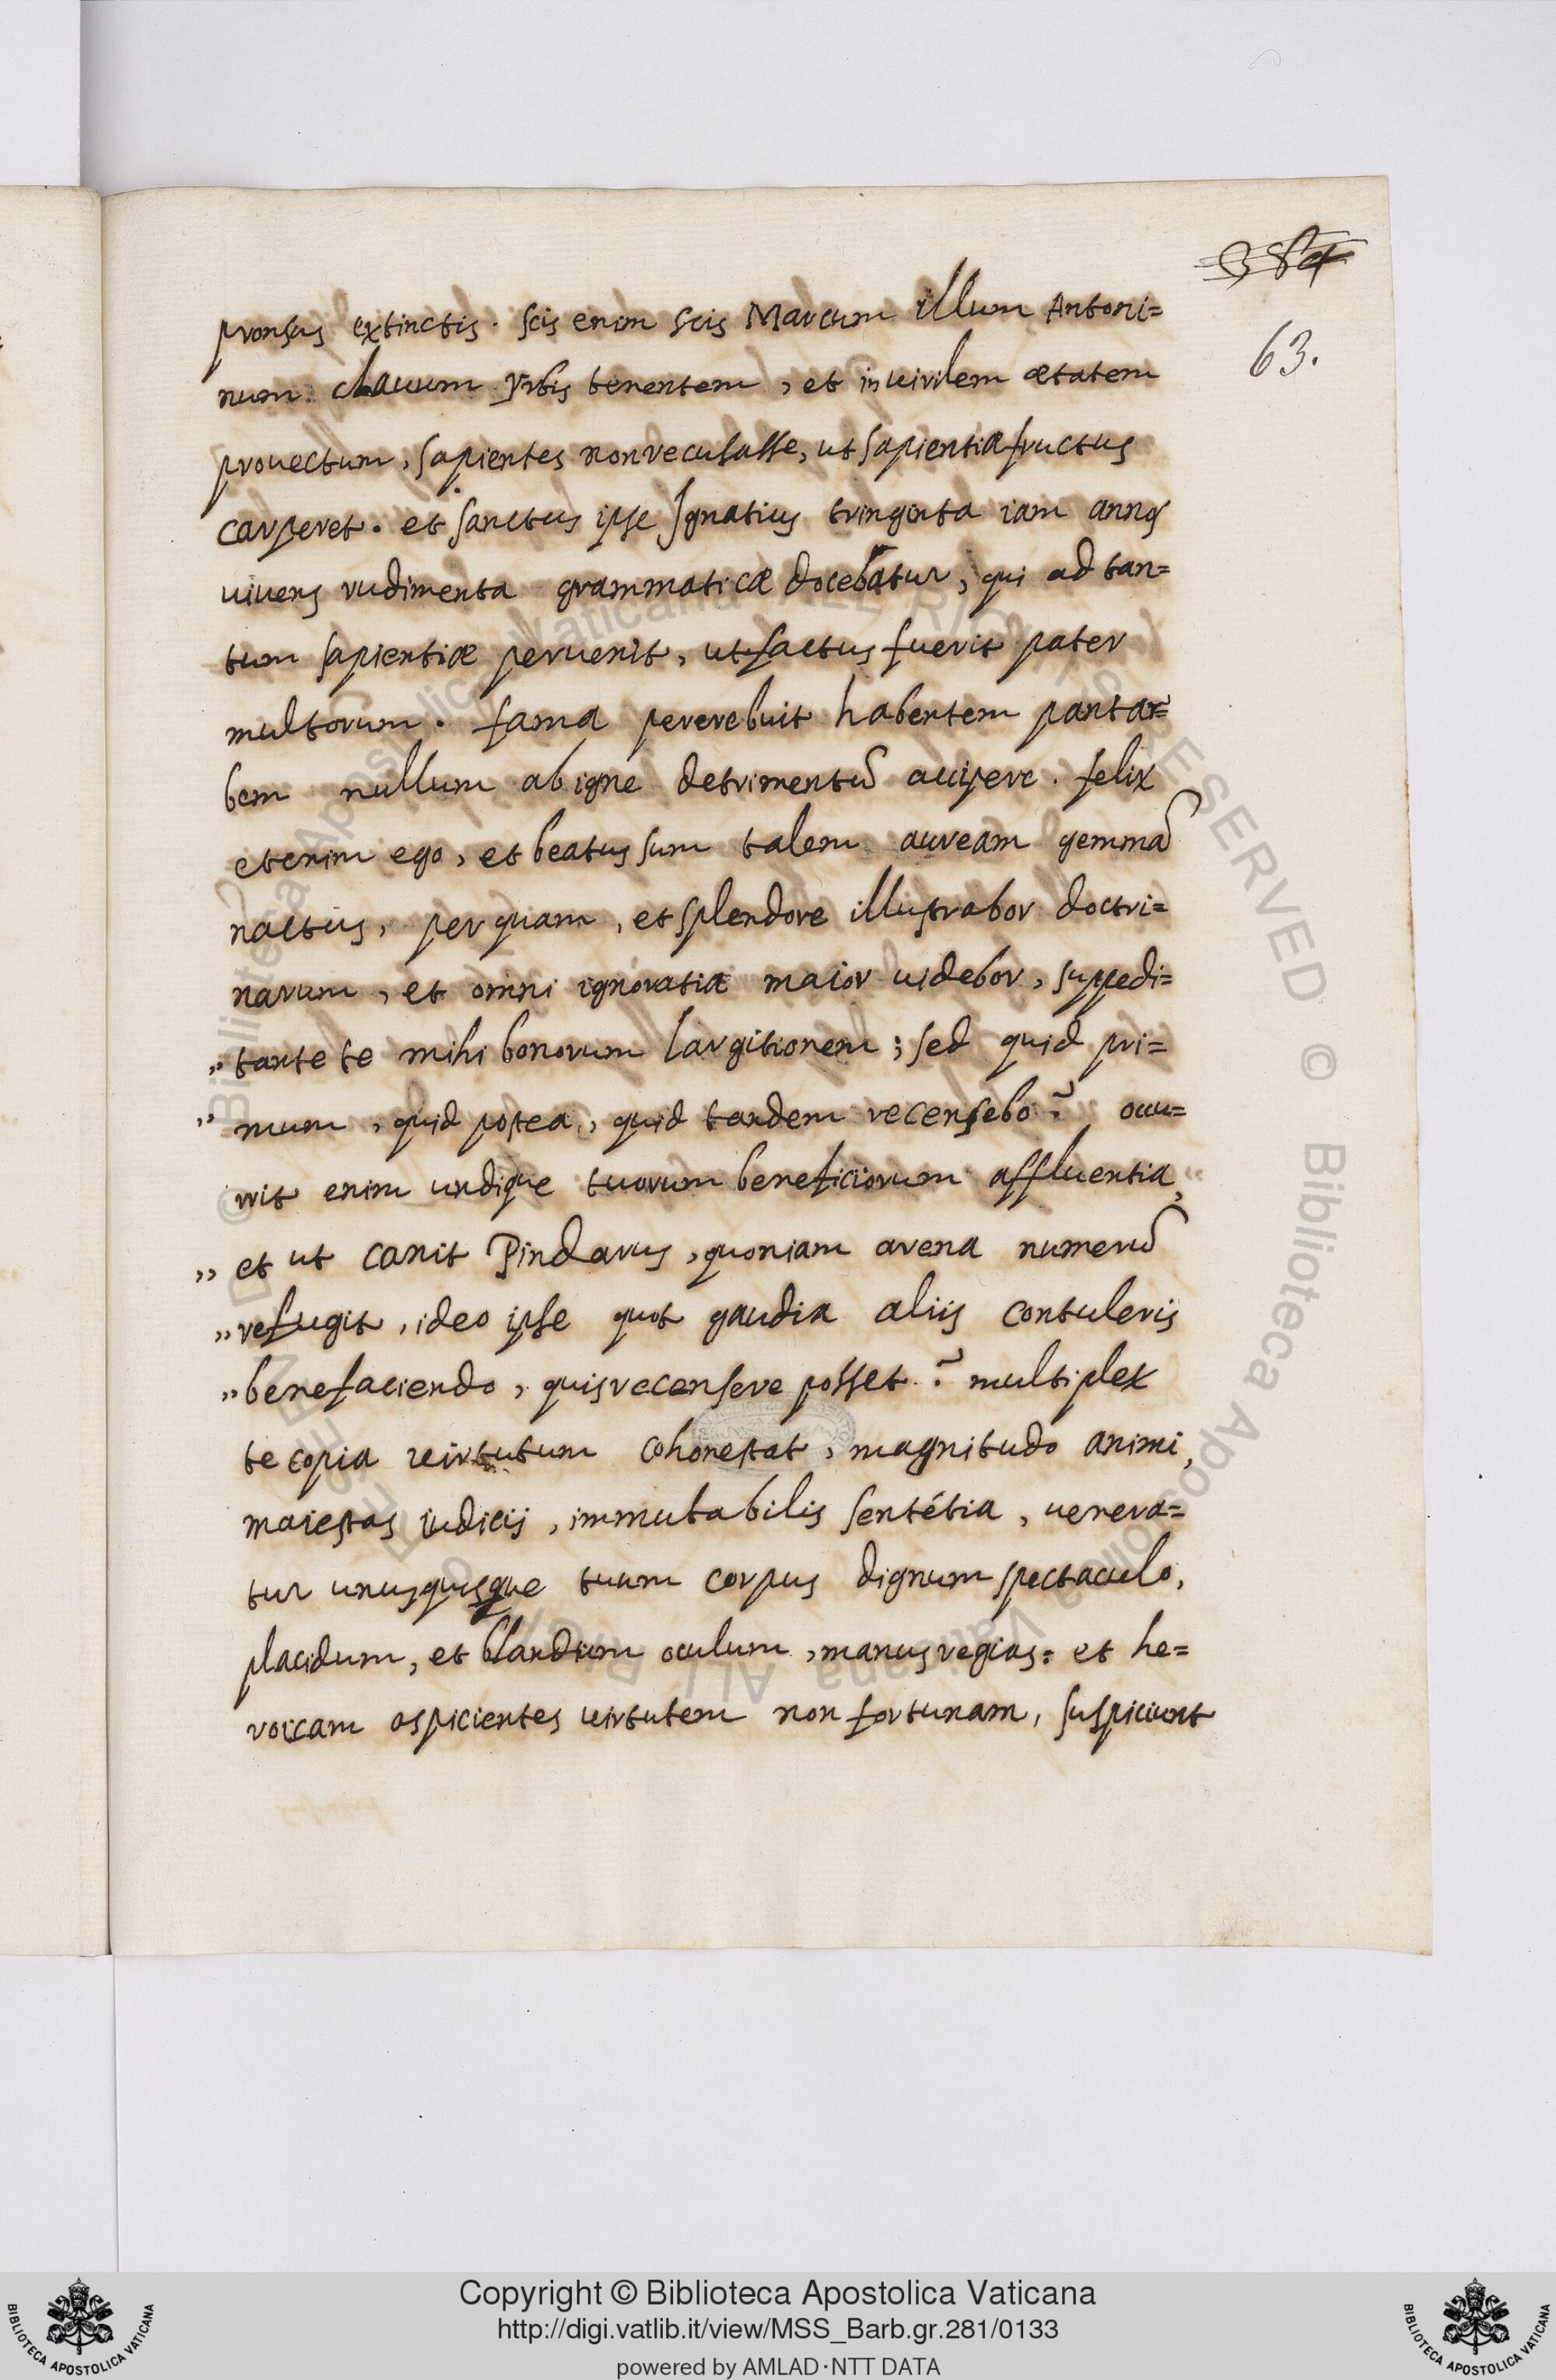 384
63.
pronsus extinctis. scis enim scis Marcum illum Antoni=
num clauum vrbis tenentem, et in uirilem ætatem
prouectum, sapientes non recusasse, ut sapientiæ fructus
carperet. et sanctus ipse Ignatius tringinta iam annos
uiuens rudimenta grammaticæ docebatur, qui ad tan=
tum sapientiæ peruenit, ut factus fuerit pater
multorum. fama pererebuit habentem pantar=
bem nullum ab igne detrimentũ accipere. felix
etenim ego, et beatus sum talem auream gemmã
nactus, per quam, et splendore illustrabor doctri=
narum, et omni ignoratia maior uidebor, suppedi=
„ tante te mihi bonorum largitionem; sed quid pri=
„ mum, quid postea, quid tandem recensebo? occu=
rrit enim undique tuorum beneficiorum affluentia,
„ et ut canit Pindarus, quoniam arena numerũ
„ refugit, ideo ipse quot gaudia aliis contuleris
„ benefaciendo, quis recensere posset? multiplex
te copia uirtutum cohonestat, magnitudo animi,
maiestas iudicij, immutabilis sentétia, uenera=
tur unusquisque tuum corpus dignum spectaculo,
placidum, et blandum oculum, manus regias: et he=
roicam aspicientes uirtutem non fortunam, suspiciunt
Copyright © Biblioteca Apostolica Vaticana
http://digi.vatlib.it/view/MSS_Barb.gr.281/0133
powered by AMLAD·NTT DATA